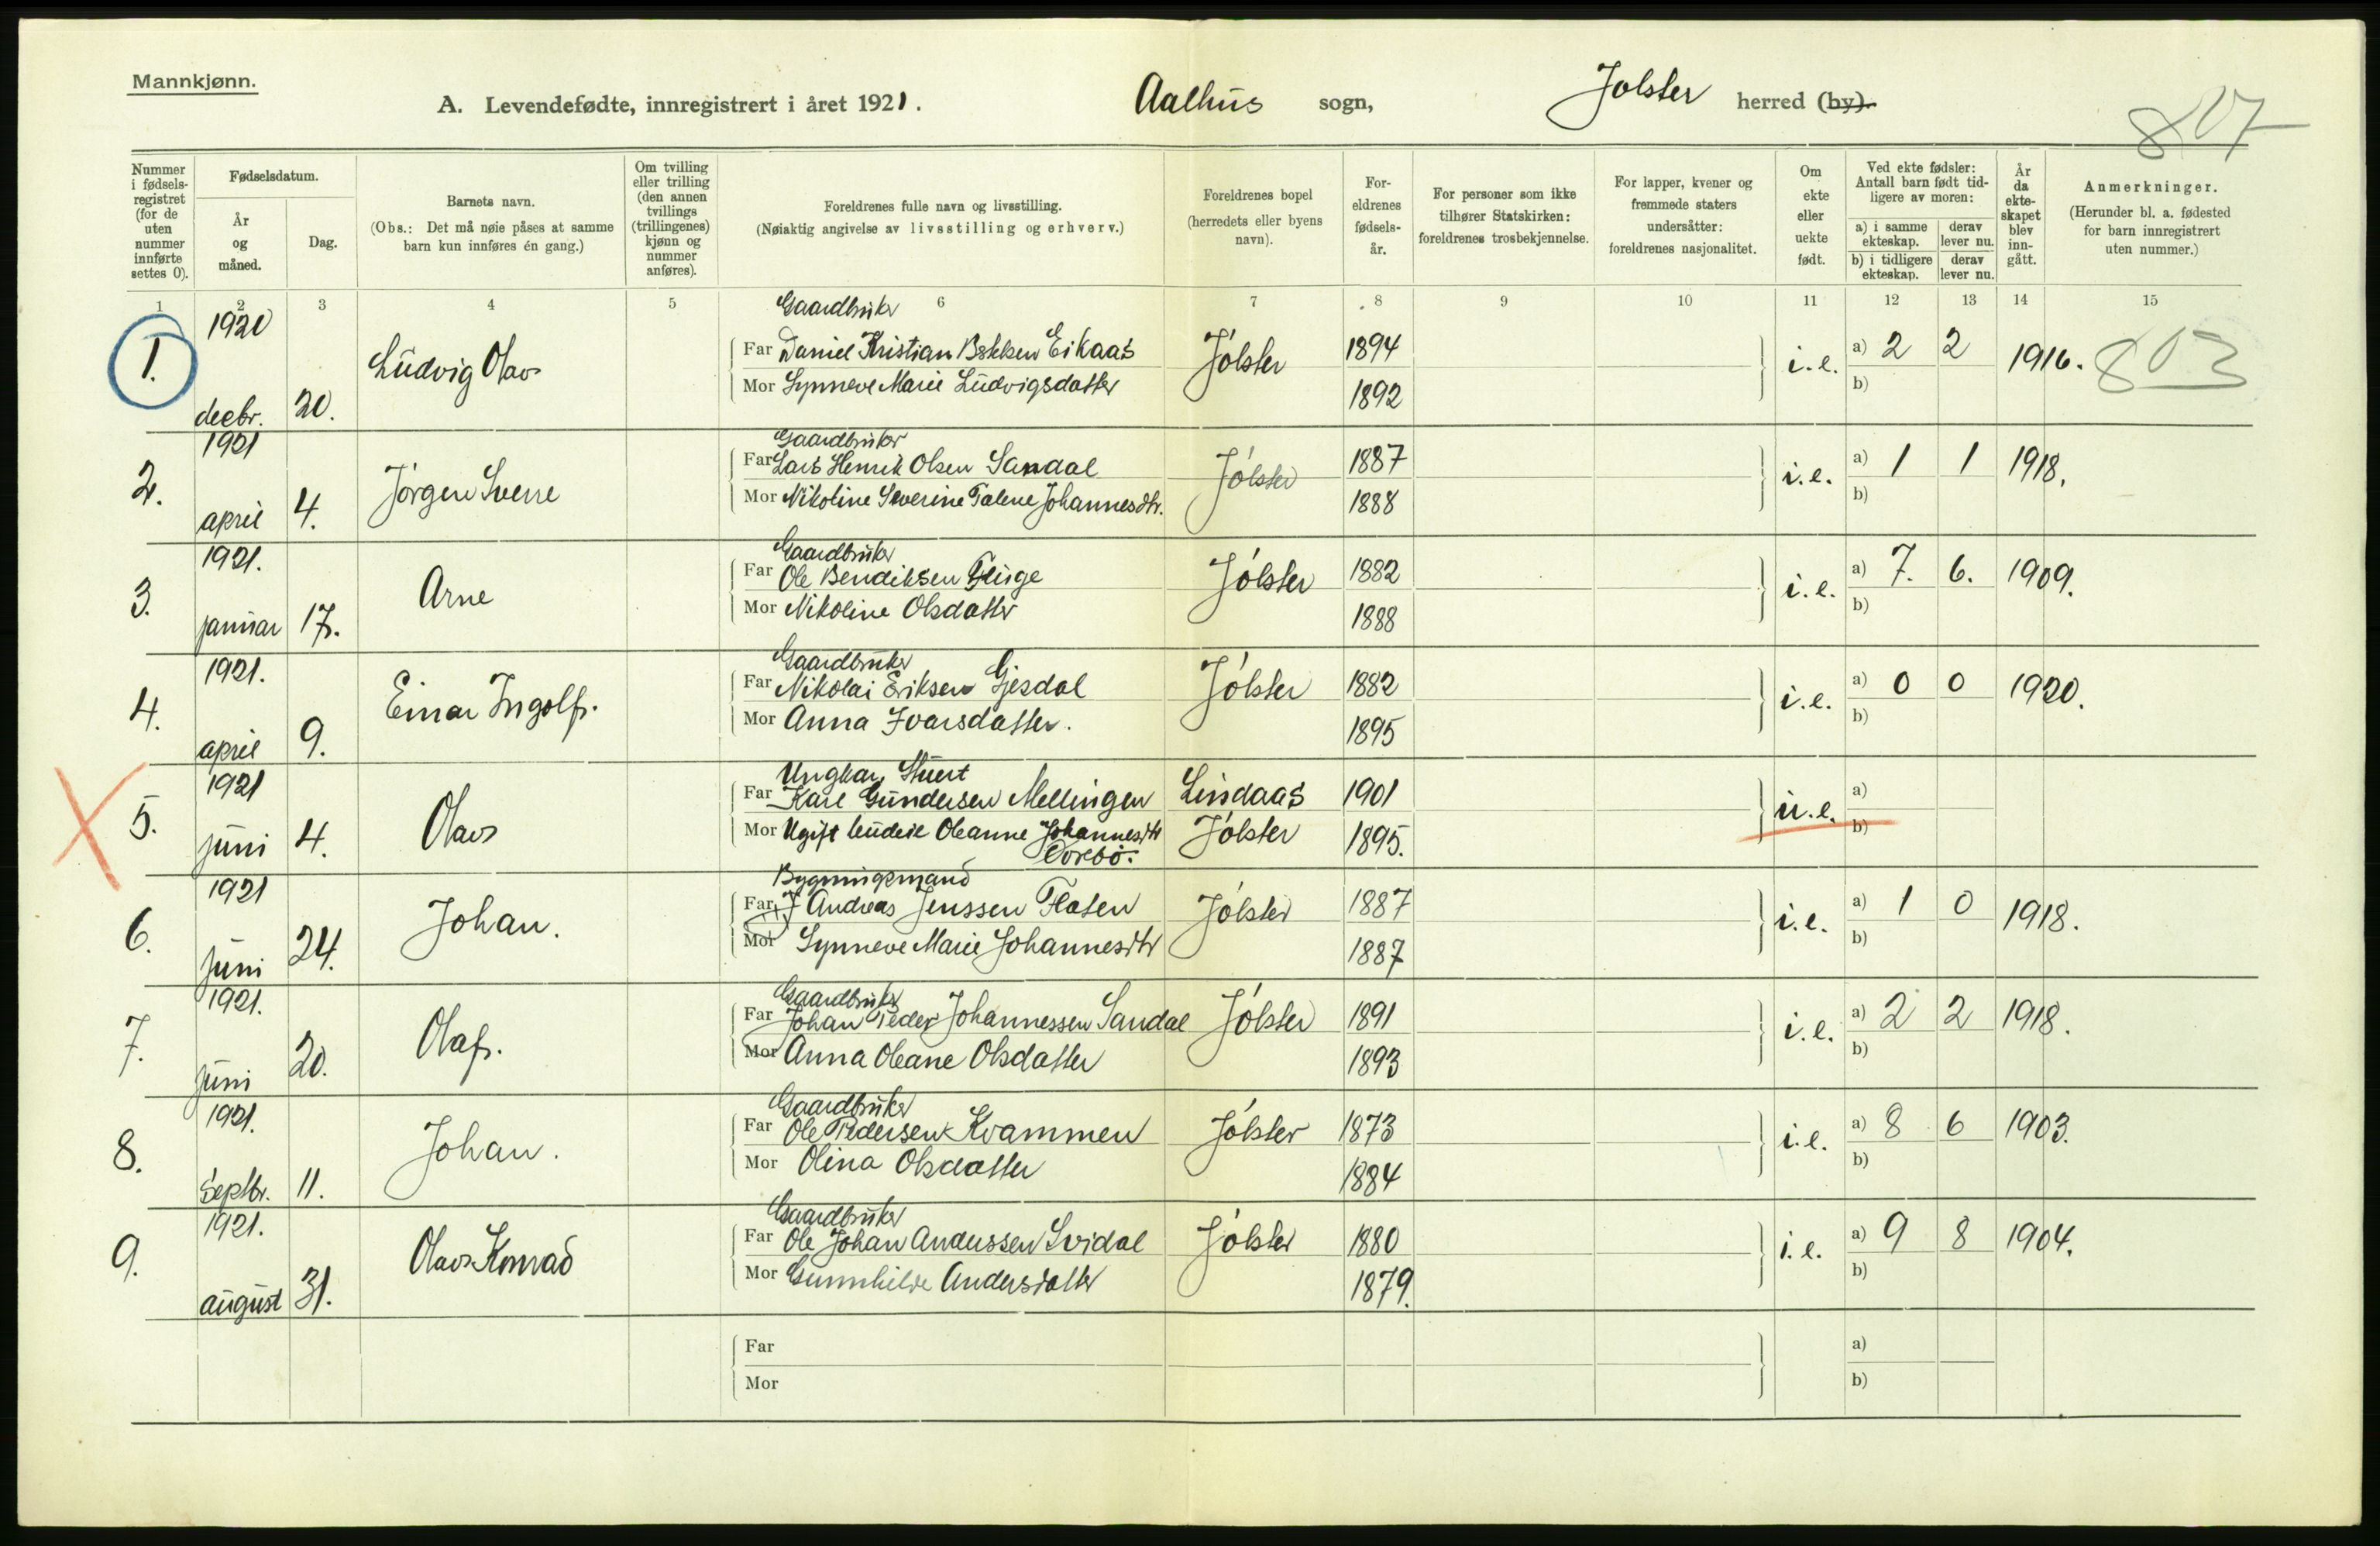 Mannkjønn.
A. Levendefødte, innregistrert i året 1921. Aalhus sogn, Jølster herred (by).
807
Nummer i fødsels-registret (for de uten nummer innførte settes 0).
Fødselsdatum.
År og måned.
Dag.
Barnets navn.
(Obs.: Det må nøie påses at samme barn kun innføres én gang.)
Om tvilling eller trilling (den annen tvillings (trillingenes) kjønn og nummer anføres).
Foreldrenes fulle navn og livsstilling.
(Nøiaktig angivelse av livsstilling og erhverv.)
Foreldrenes bopel (herredets eller byens navn).
For-eldrenes fødsels-år.
For personer som ikke tilhører Statskirken: foreldrenes trosbekjennelse.
For lapper, kvener og fremmede staters undersåtter: foreldrenes nasjonalitet.
Om ekte eller uekte født.
Ved ekte fødsler: Antall barn født tid-ligere av moren:
a) i samme ekteskap. derav lever nu.
b) i tidligere ekteskap. derav lever nu.
År da ekte-skapet blev inn-gått.
Anmerkninger.
(Herunder bl. a. fødested for barn innregistrert uten nummer.)
1 2 3 4 5 6 7 8 9 10 11 12 13 14 15
1920 Gaardbruker
1. Ludvig Olav Far Daniel Kristian Eikaas Jølster 1894 i.e. a) 2 2 1916. 803
decbr. 20. Mor Synneve Marie Ludvigsdatter 1892 b)
1921 Gaardbruker
2. Jørgen Sverre Far Lars Henrik Olsen Sandal Jølster 1887 i.e. a) 1 1 1918.
april 4. Mor Nikoline Severine Talene Johannesdtr. 1888 b)
1921. Gaardbruker
3. Arne Far Ole Bendiksen Fluge Jølster 1882 i.e. a) 7. 6. 1909.
januar 17. Mor Nikoline Olsdatter 1888 b)
1921. Gaardbruker
4. Einar Ingolf. Far Nikolai Eriksen Gjesdal Jølster 1882 i.e. a) 0 0 1920.
april 9. Mor Anna Ivarsdatter. 1895 b)
1921 Ungkar,
5. Olav Far Karl Gundersen Mellingen Lindaas 1901 u.e. a)
juni 4. Mor Ugift Oleanne Johannesdtr Jølster 1895. b)
1921 Bygningsmand
6. Johan. Far Andreas Jenssen Flaten Jølster 1887 i.e. a) 1 0 1918.
juni 24. Mor Synneve Marie Johannesdtr 1887 b)
1921. Gaardbruker
7. Olaf. Far Johan Peder Johannessen Sandal Jølster 1891 i.e. a) 2 2 1918.
juni 20. Mor Anna Oleane Olsdatter 1893 b)
1921. Gaardbruker
8. Johan. Far Ole Pedersen Kvammen Jølster 1873 i.e. a) 8 6 1903.
Septbr. 11. Mor Olina Olsdatter 1884 b)
1921. Gaardbruker
9. Olav Konrad Far Ole Johan Anderssen Svidal Jølster 1880 i.e. a) 9 8 1904.
august 31. Mor Gunnhilde Andersdatter 1879. b)
Far a)
Mor b)